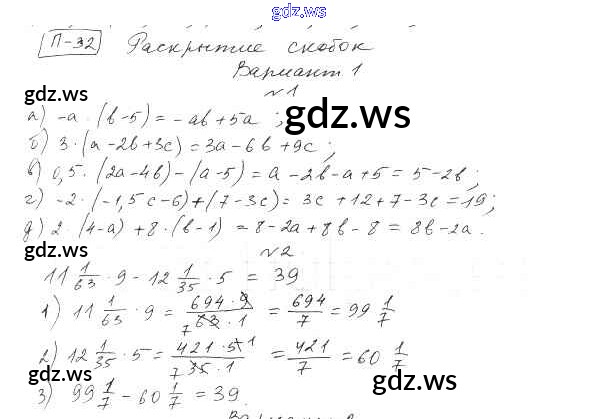 gdz.ws
П-32 Раскрытие скобок
Вариант 1
gdz.ws
№1
а) -a·(b-5) = -ab+5a ;
gdz.ws
б) 3·(a-2b+3c) = 3a-6b+9c ;
в) 0,5·(2a-4b)-(a-5) = a-2b-a+5 = 5-2b ;
г) -2·(-1,5c-6)+(7-3c) = 3c+12+7-3c = 19 ;
д) 2·(4-a)+8·(b-1) = 8-2a+8b-8 = 8b-2a.
gdz.ws
№2
11 1/63 · 9 - 12 1/35 · 5 = 39
1) 11 1/63 · 9 = 694·9/63·1 7 = 694/7 = 99 1/7
gdz.ws
2) 12 1/35 · 5 = 421·5 1/7 35·1 = 421/7 = 60 1/7
gdz.ws
gdz.ws
3) 99 1/7 - 60 1/7 = 39.